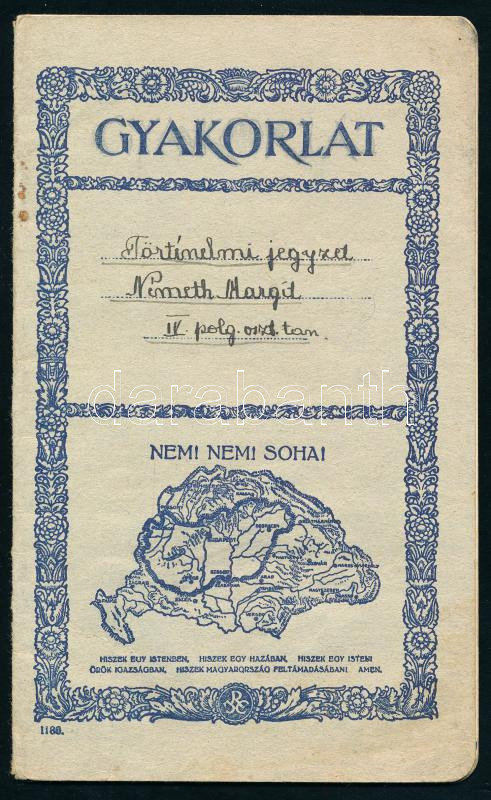 GYAKORLAT
Történelmi jegyzet
Németh Margit
IV. polg. oszt. tan.
darabanth
NEM! NEM! SOHA!
BUDAPEST
DEBRECEN
SZEGED
ARAD
KASSA
HISZEK EGY ISTENBEN, HISZEK EGY HAZÁBAN, HISZEK EGY ISTENI
ÖRÖK IGAZSÁGBAN, HISZEK MAGYARORSZÁG FELTÁMADÁSÁBAN! AMEN.
1180.